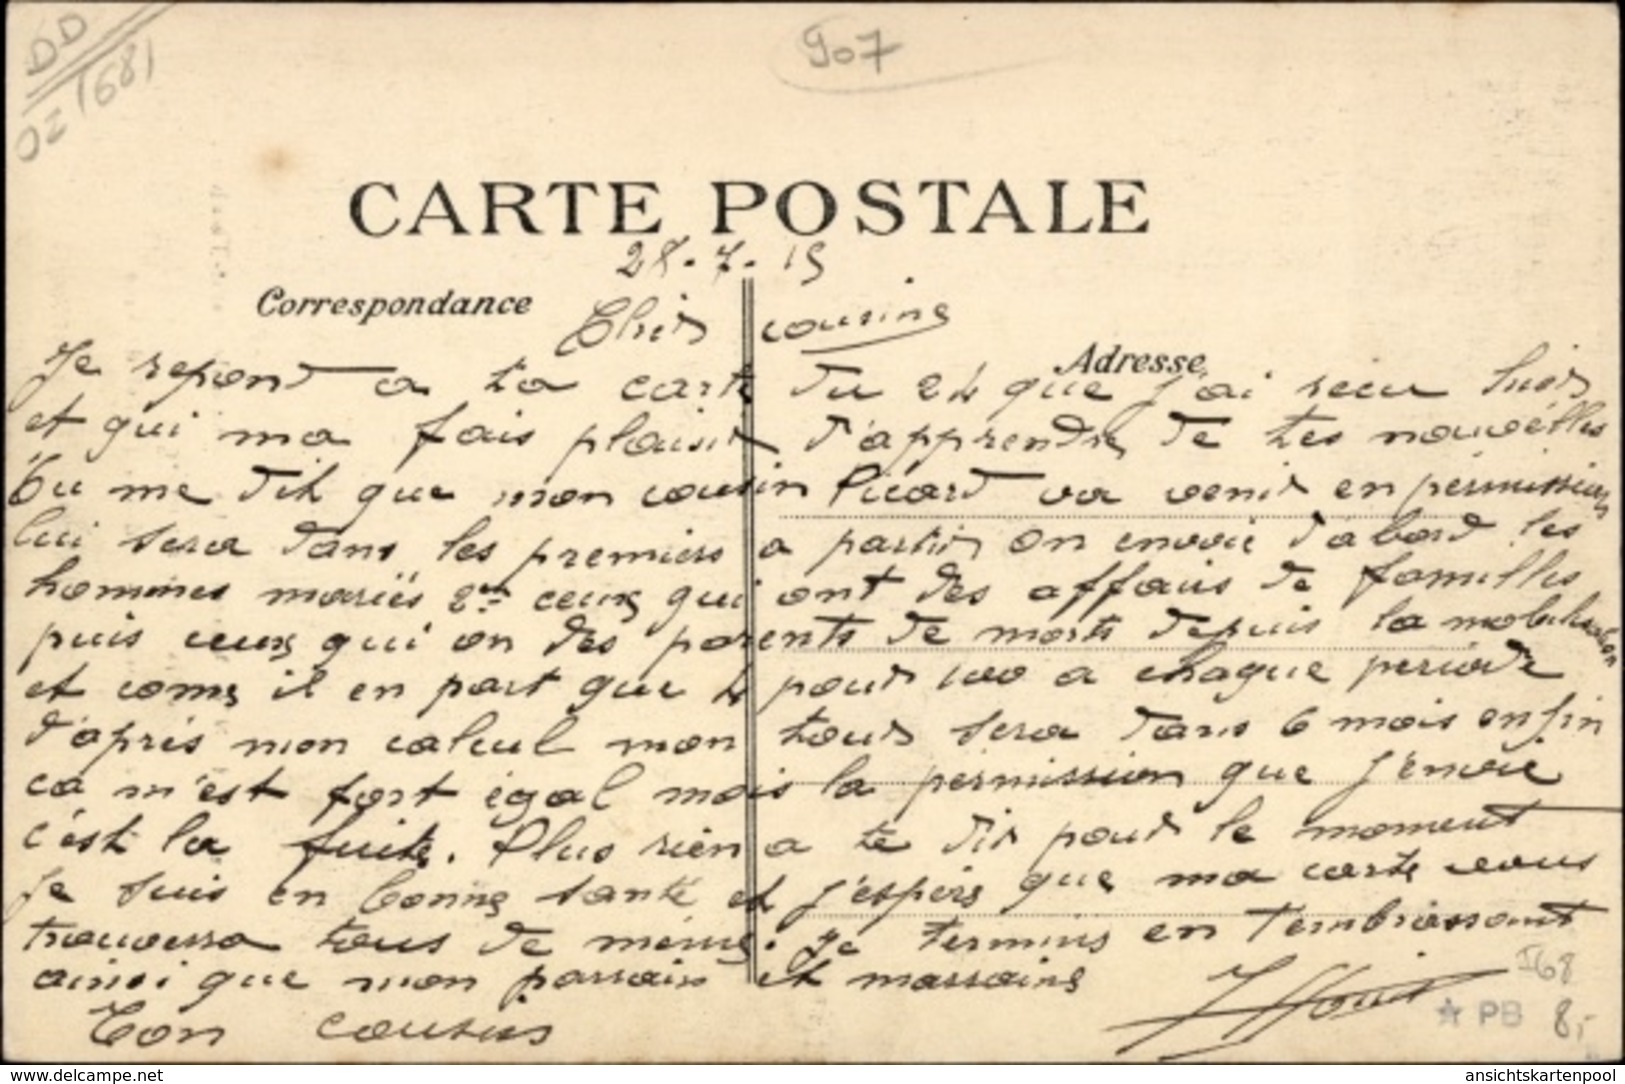 DD
1681
OZ
907
CARTE POSTALE
28.7.15
Correspondance
Cher cousine
Adresse
Je repond a ta carte du 24 que j'ai recu hier
et qui ma fais plaisir d'apprendre de tes nouvelles
Tu me dit que mon cousin Picard va venir en permission
lui sera dans les premiers a partir on envoie d'abord les
hommes mariés 2em ceux qui ont des affairs de familles
puis ceux qui on des parents de morts depuis la mobilisation
et come il en part que 4 pour 100 a chaque periode
d'après mon calcul mon tour sera dans 6 mois enfin
ca m'est fort égal mais la permission que j'envie
c'est la fuite. Plus rien a te dir pour le moment
Je suis en bonne santé et j'espère que ma carte vous
trouverra tous de même. Je termine en t'embrassant
ainsi que mon parrain et marraine
Ton cousin
I68
PB 8,-
www.delcampe.net
ansichtskartenpool